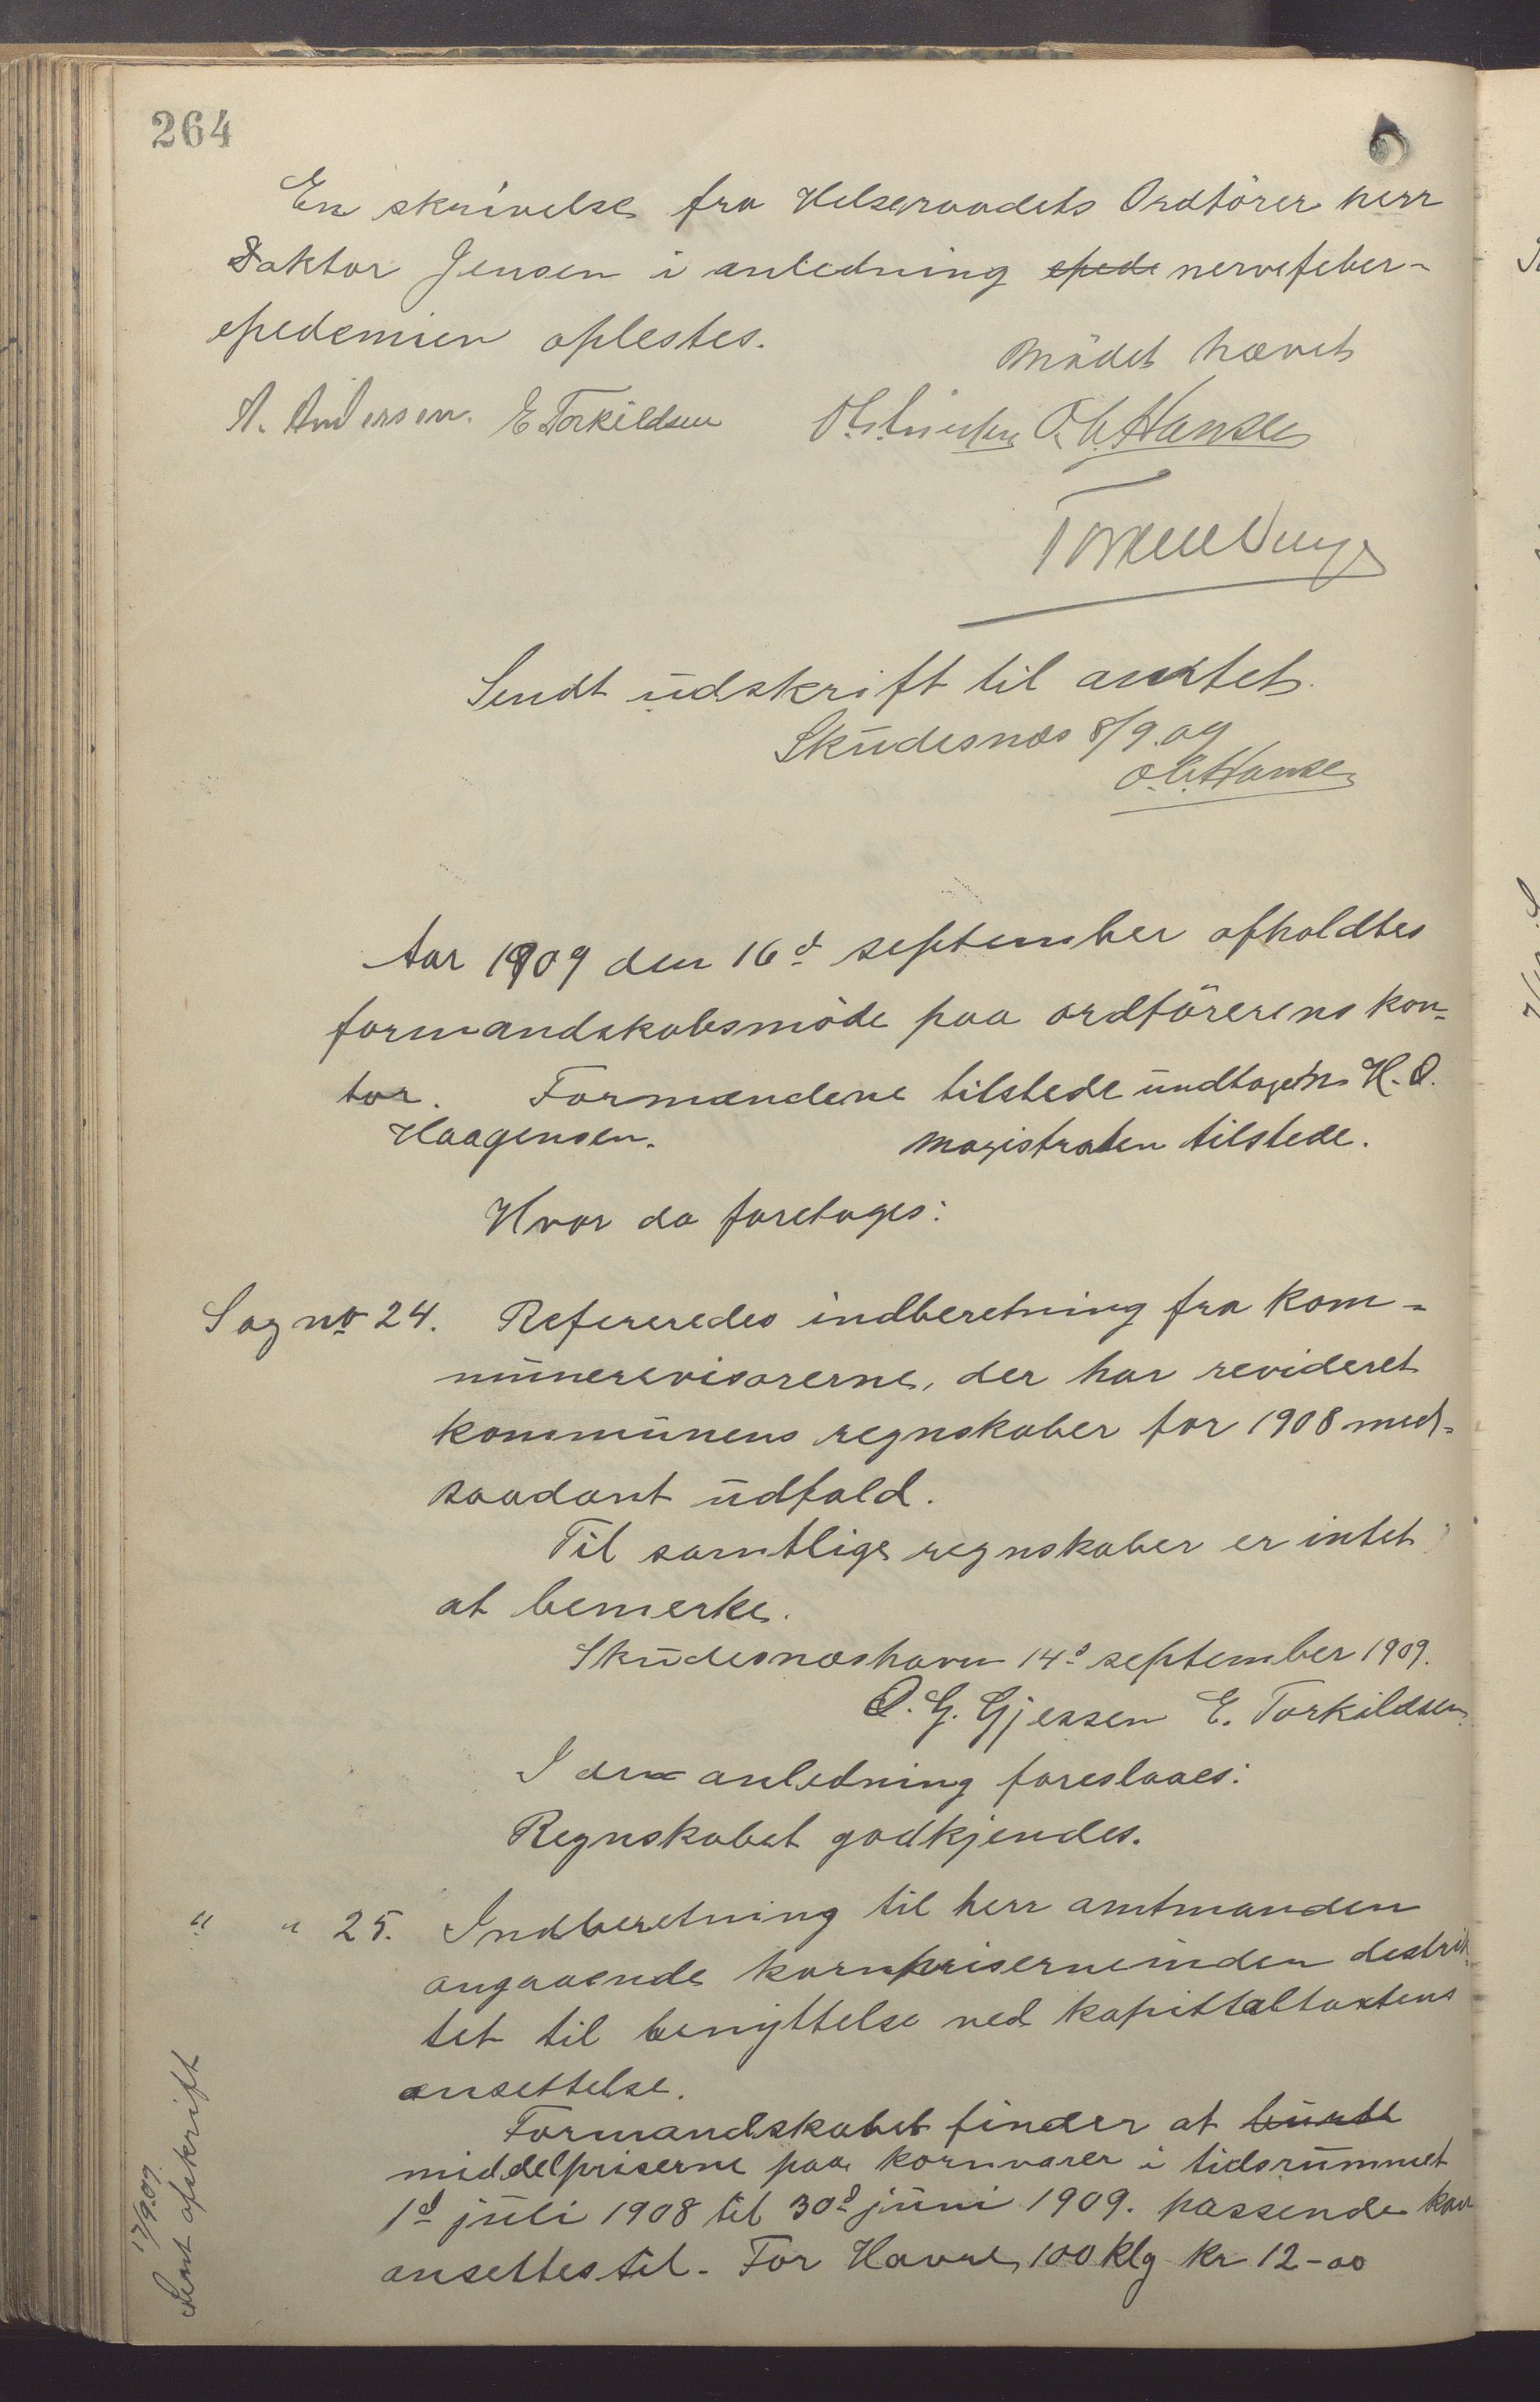 264
En skrivelse fra Helseraadets Ordfører herr
Doktor Jensen i anledning epede nervefeber-
epedemien oplestes.
Mødet hævet
A. Andersen. E Torkildsen O. C. Hansen
Sendt udskrift til amtet.
Skudesnæs 8/9.09
O. C. Hansen
Aar 1909 den 16d september afholdtes
formandskabsmøde paa ordførerens kon-
tor. Formændene tilstede undtagen H. O.
Haagensen. Magistraten tilstede.
Hvor da foretoges:
Sag no 24. Refereredes indberetning fra kom-
munerevisorerne, der har revideret
kommunens regnskaber for 1908 med-
saadant udfald.
Til samtlige regnskaber er intet
at bemerke.
Skudesnæshavn 14d september 1909.
O. G. Gjessen E. Torkildsen
I den anledning foreslaaes:
Regnskabet godkjendes.
" " 25. Indberetning til herr amtmanden
angaaende kornpriserne inden destrik-
tet til benyttelse ved kapitteltaxtens
ansettelse.
Formandskabet finder at burde
middelpriserne paa kornvarer i tidsrummet
1d juli 1908 til 30d juni 1909. passende kan
ansettes til. For Havre 100 klg kr 12-00
Sent afskrift
17/9.09